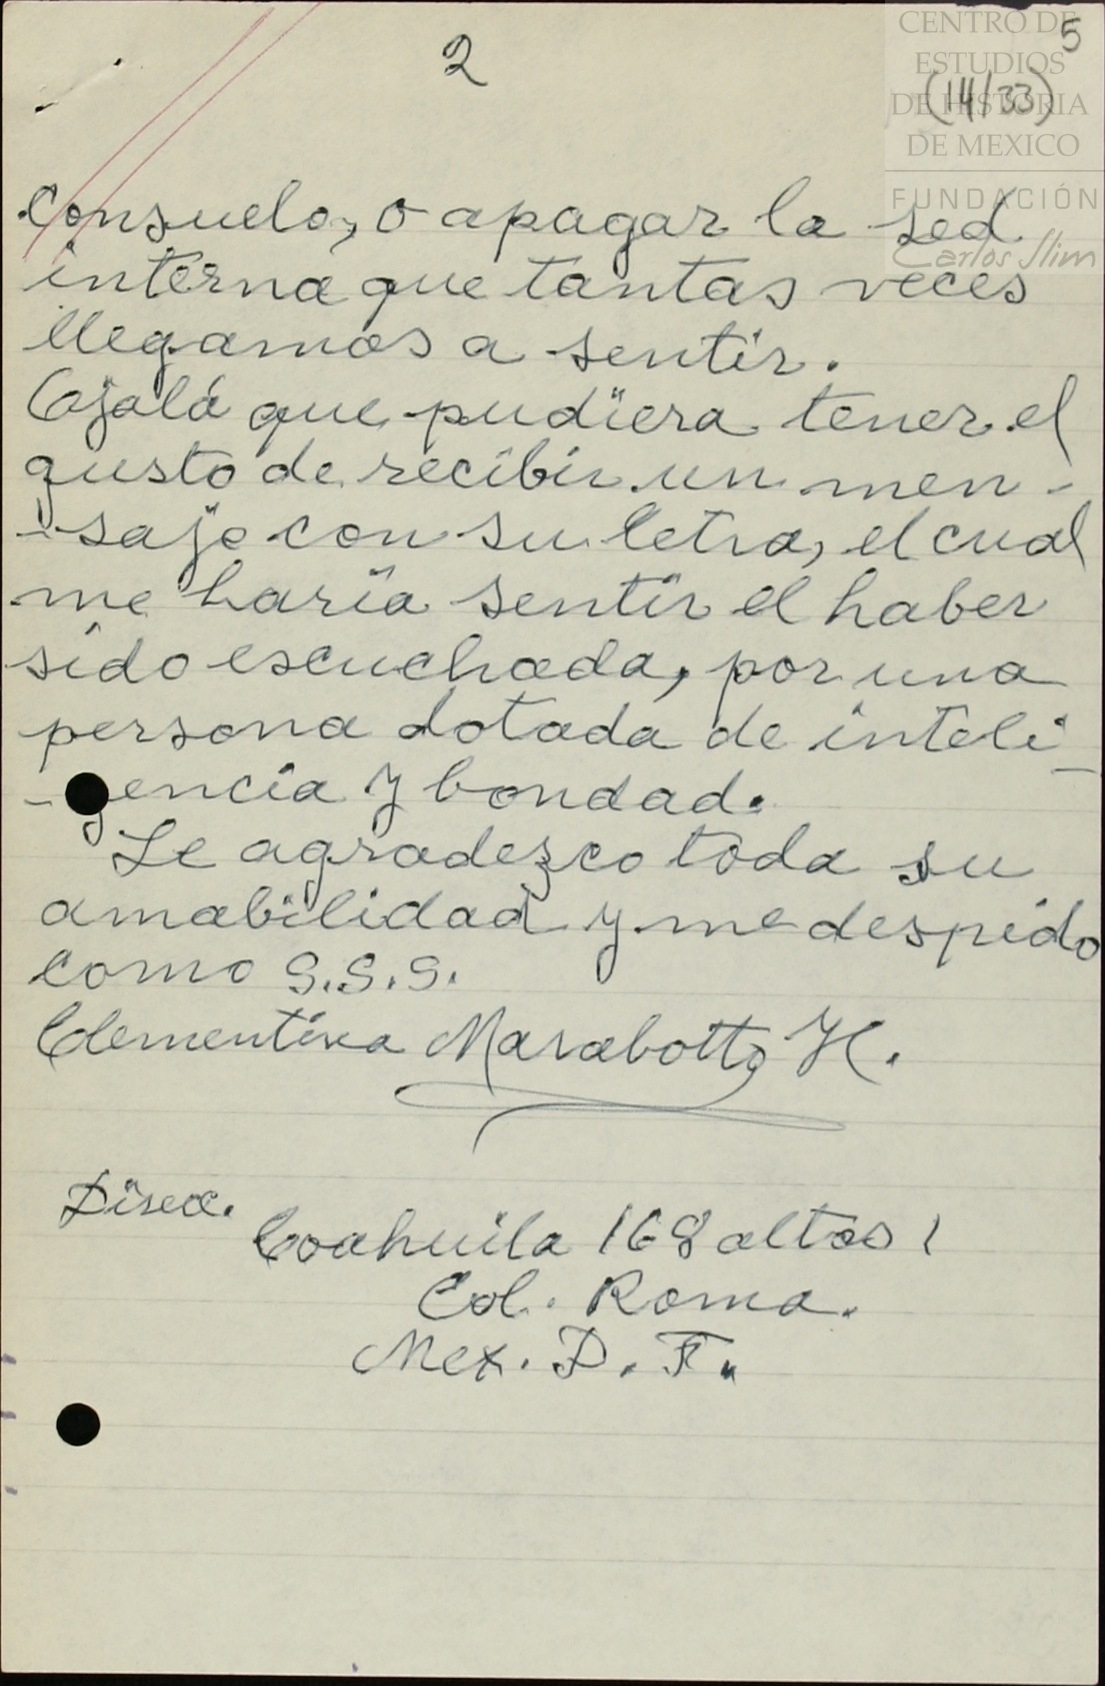 CENTRO DE
ESTUDIOS
DE HISTORIA
DE MEXICO
FUNDACIÓN
Carlos Slim
5
(14/33)
2
Consuelo, o apagar la sed
interna que tantas veces
llegamos a sentir.
Ojalá que pudiera tener el
gusto de recibir un men-
-saje con su letra, el cual
me haria sentir el haber
sido escuchada, por una
persona dotada de inteli-
-gencia y bondad.
Le agradezco toda su
amabilidad y me despido
como S.S.S.
Clementina Marabotto H.
Direcc.
Coahuila 168 altos 1
Col. Roma.
Mex. D. F.